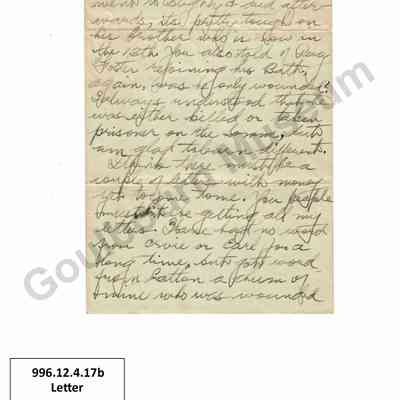 I said after
wards, its pretty tough on
her brother who is now in
the 12th. You also told of Roy
Foster rejoining his Batt.
again, was he only wounded?
I always understood that he
was either killed or taken
prisoner on the Somme, but
am glad to learn different.
there must be a
couple of letters with money
yet to come home. You people
must be getting all my
letters. Have had no word
from or Earl for a
long time, but got word
from Patton a chum of
mine who was wounded
Goulbourn Museum
996.12.4.17b
Letter